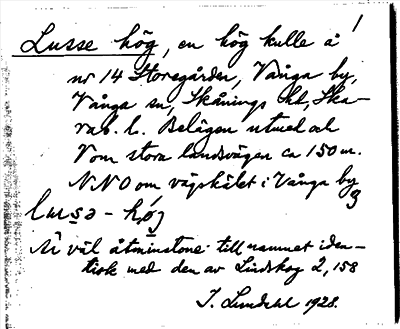 Lusse hög, en hög kulle å
nr 14 Storegården, Vånga by,
Vånga sn, Skånings hd, Ska-
rab. l. Belägen utmed och
V om stora landsvägen ca 150 m.
NNO om vägskälet i Vånga by
lusə - hǿg
Är väl åtminstone till namnet iden-
tisk med den av Lindskog 2, 158
J. Lundahl 1928.